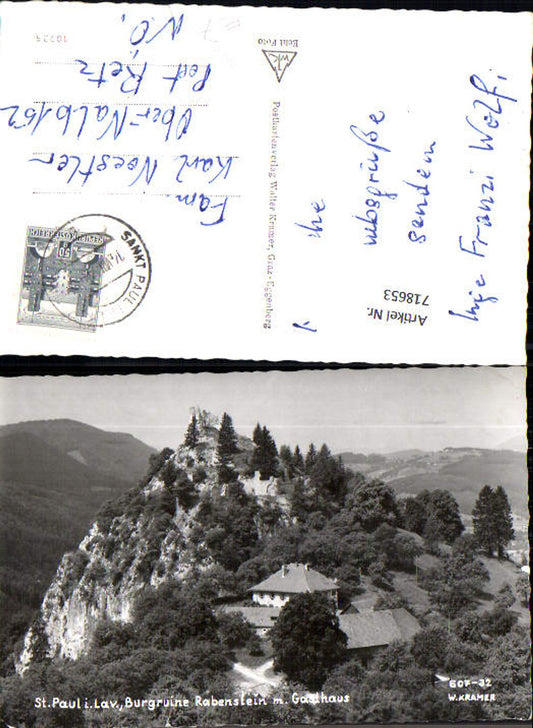 Fam.
Karl Noestler
Ober-Nalb 152
Post Retz
N.Ö.
10225
REPUBLIK ÖSTERREICH
50 g
SANKT PAUL
Echt Foto
WK
Postkartenverlag Walter Kramer, Graz-Eggenberg
senden
Inge Franzi Wolfi
Artikel Nr.
718653
St. Paul i. Lav., Burgruine Rabenstein m. Gasthaus
607-32
W. KRAMER